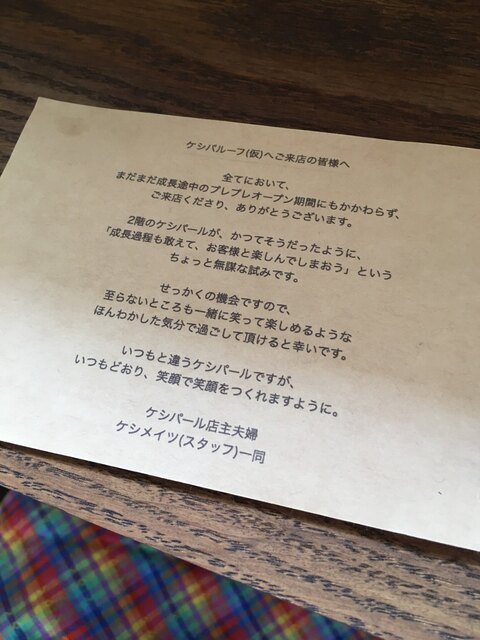 ケシパルーフ(仮)へご来店の皆様へ
全てにおいて、
まだまだ成長途中のプレプレオープン期間にもかかわらず、
ご来店くださり、ありがとうございます。
2階のケシパールが、かつてそうだったように、
「成長過程も敢えて、お客様と楽しんでしまおう」という
ちょっと無謀な試みです。
せっかくの機会ですので、
至らないところも一緒に笑って楽しめるような
ほんわかした気分で過ごして頂けると幸いです。
いつもと違うケシパールですが、
いつもどおり、笑顔で笑顔をつくれますように。
ケシパール店主夫婦
ケシメイツ(スタッフ)一同